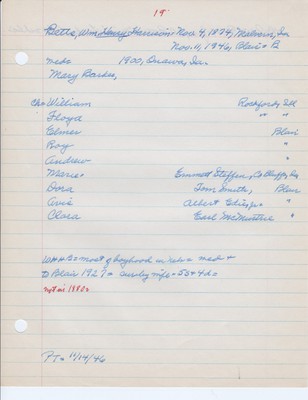 19
Betts, Wm Henry Harrison: Nov. 4, 1874, Malvern, Ia
Nov. 11, 1946, Blair + B
md: 1900, Onawa, Ia.
Mary Barker,
Ch: William Rockford, Ill
Floyd " "
Elmer Blair
Roy "
Andrew "
Marie: Emmett Steffen, Co Bluffs, Ia
Dora Tom Smith, Blair
Avis Albert
Clara Earl McMurtrie "
WHHB: most of boyhood in
to Blair 1927: surv by wife: 5S + 4 ds
not in 1980s
PT: 11/14/46